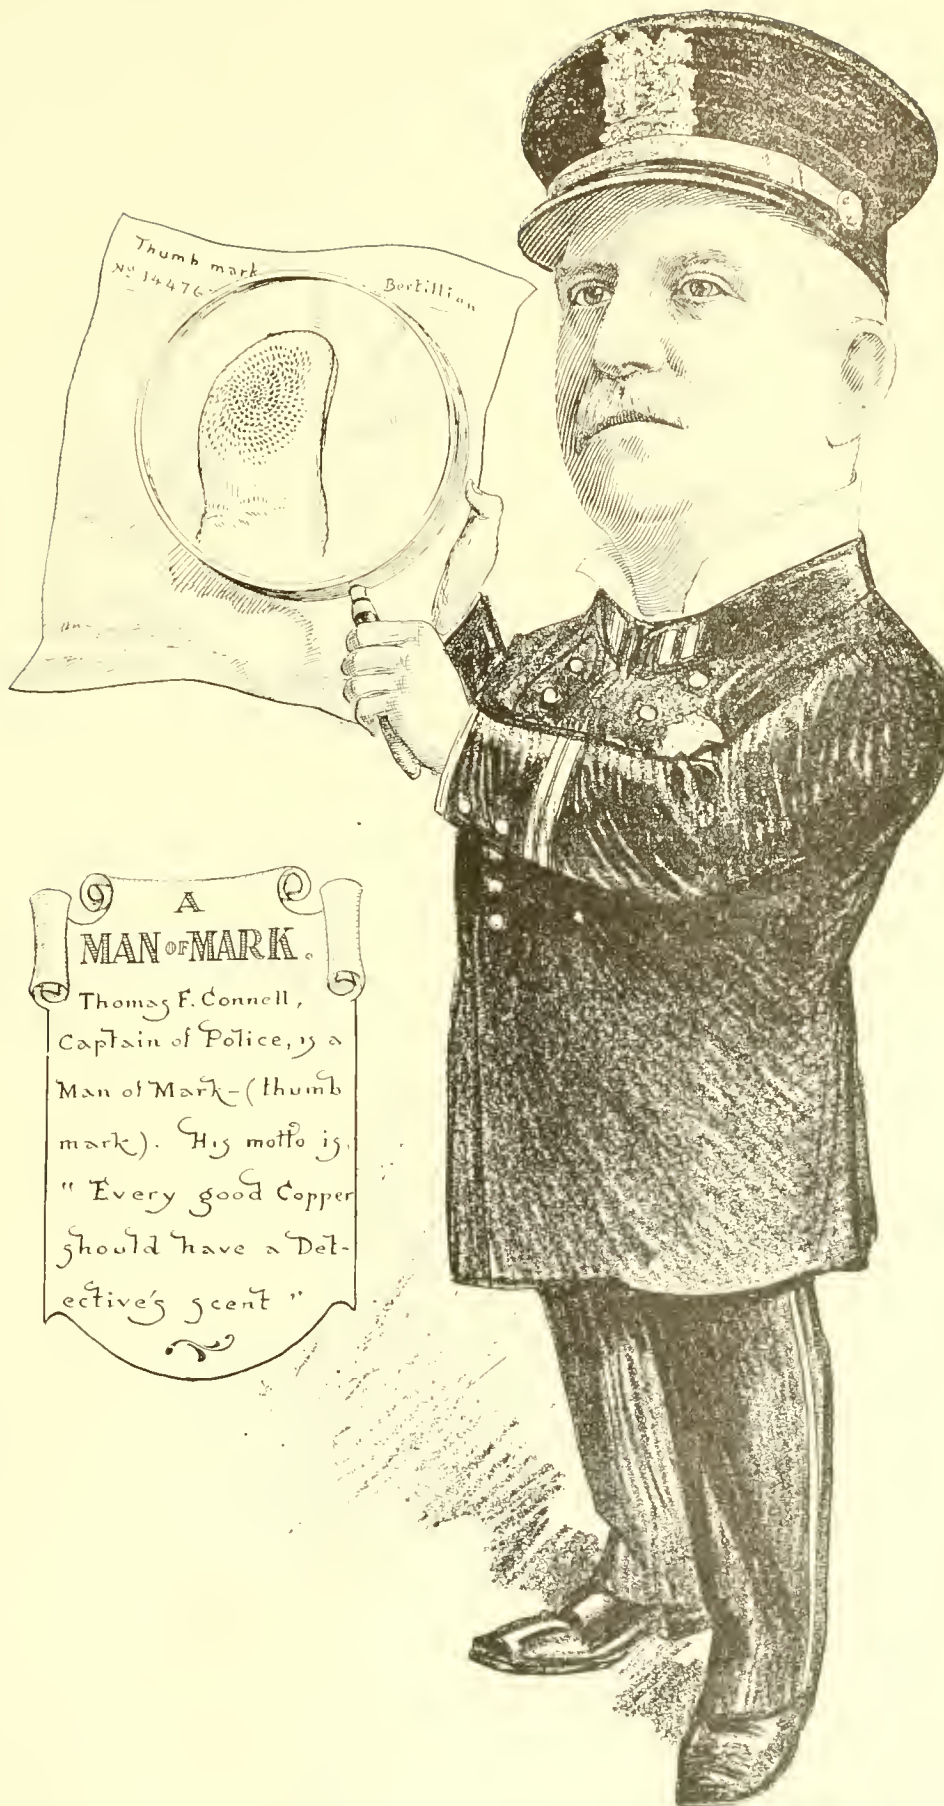 Thumb mark
No 14476
Bertillian
A
MAN OF MARK.
Thomas F. Connell,
Captain of Police, is a
Man of Mark-(thumb
mark). His motto is,
" Every good Copper
should have a Det-
ective's scent "